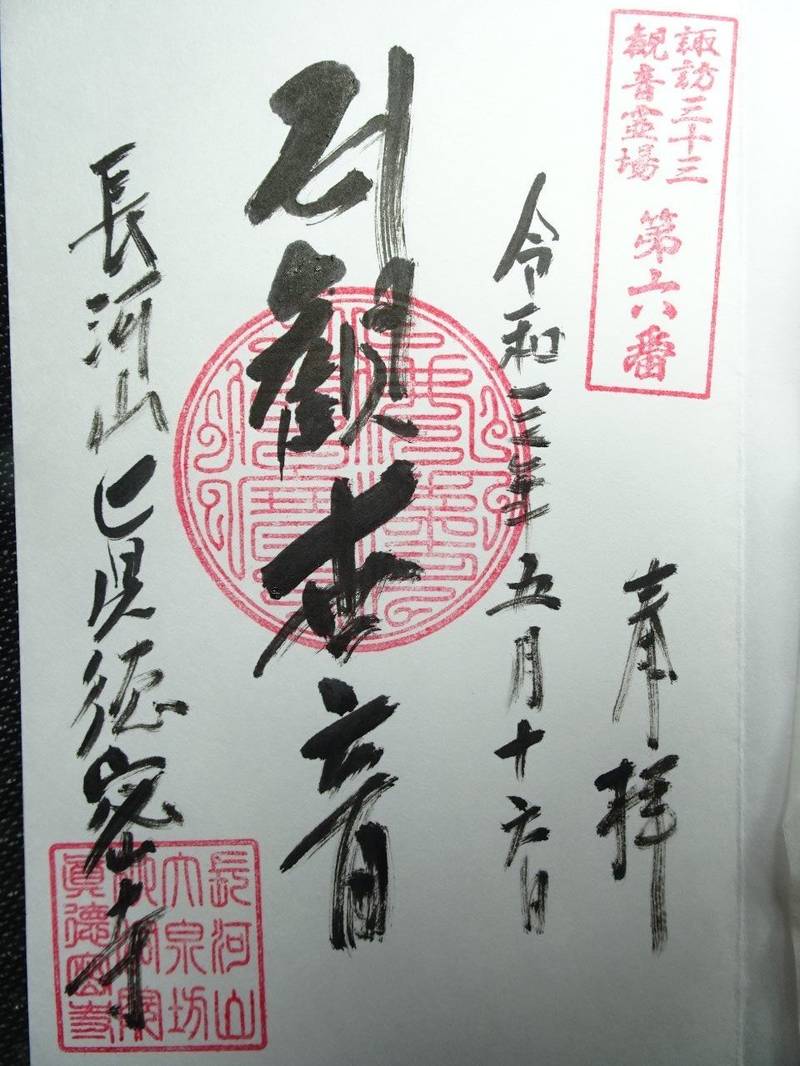 諏訪三十三
観音霊場
第六番
奉拝
令和三年五月十六日
観世音
長河山真徳密寺
長河山
大泉坊
眞德密寺